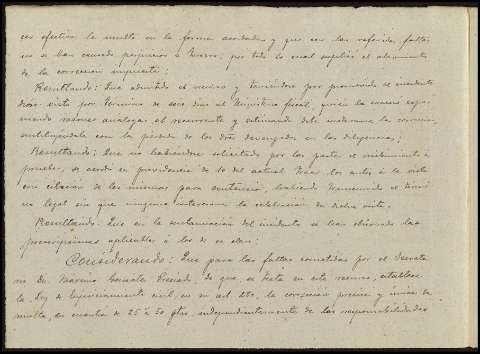 cer efectiva la multa en la forma acordada y que con las referidas faltas
no se han causado perjuicios a tercero; por todo lo cual suplicó el alzamiento
de la corrección impuesta;
Resultando: Que admitido el recurso y teniéndose por promovido el incidente
dióse vista por término de seis días al Ministerio fiscal, quien la evacuó expo-
niendo razones analogas al recurrente y estimando debe moderarse la corrección,
sustituyéndola con la pérdida de los dros devengados en las diligencias;
Resultando: Que no habiéndose solicitado por las partes el recibimiento á
prueba, se acordó en providencia de 10 del actual traer los autos á la vista
con citación de las mismas para sentencia, habiendo transcurrido el térmi-
no legal sin que ninguna interesara la celebración de dicha vista.
Resultando: Que en la sustanciación del incidente se han observado las
prescripciones aplicables á los de su clase:
Considerando: Que para las faltas cometidas por el Secreta-
rio Dn. Maximo Gonzalez Preciado, de que se trata en este recurso, establece
la Ley de Enjuiciamiento civil, en su art. 280, la corrección precisa y única de
multa, en cuantía de 25 á 50 ptas, independientemente de las responsabilidades